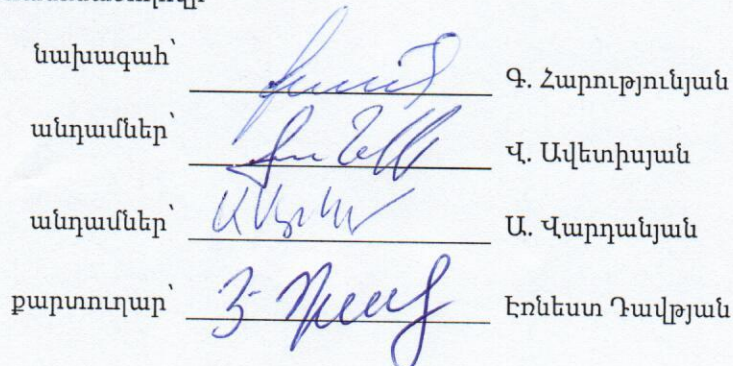 նախագահ՝ Գ. Հարությունյան
անդամներ՝ Վ. Ավետիսյան
անդամներ՝ Ա. Վարդանյան
քարտուղար՝ Էռնեստ Դավթյան